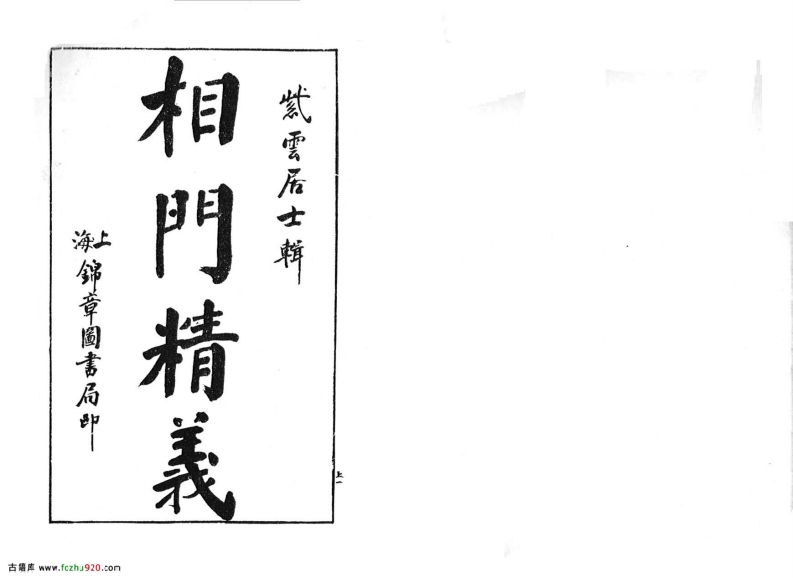 紫雲居士輯
相門精義
上海錦章圖書局印
上一
古籍库 www.fozhu920.com